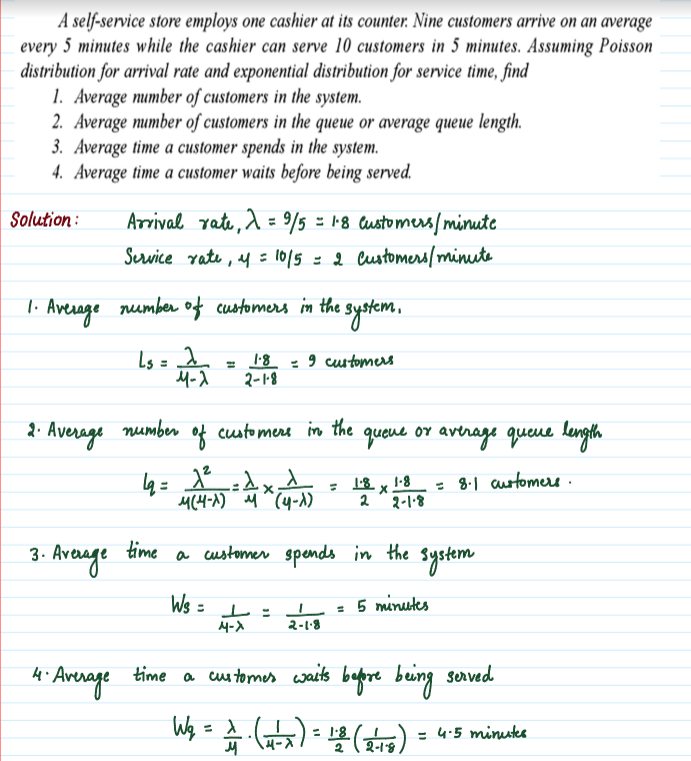 A self-service store employs one cashier at its counter. Nine customers arrive on an average
every 5 minutes while the cashier can serve 10 customers in 5 minutes. Assuming Poisson
distribution for arrival rate and exponential distribution for service time, find
1. Average number of customers in the system.
2. Average number of customers in the queue or average queue length.
3. Average time a customer spends in the system.
4. Average time a customer waits before being served.
Solution: Arrival rate, λ = 9/5 = 1.8 Customers/minute
Service rate, μ = 10/5 = 2 Customers/minute
1. Average number of customers in the system.
Ls = λ/(μ-λ) = 1.8/(2-1.8) = 9 customers
2. Average number of customers in the queue or average queue length
Lq = λ²/(μ(μ-λ)) = λ/μ × λ/(μ-λ) = 1.8/2 × 1.8/(2-1.8) = 8.1 customers.
3. Average time a customer spends in the system
Ws = 1/(μ-λ) = 1/(2-1.8) = 5 minutes
4. Average time a customer waits before being served
Wq = λ/μ . (1/(μ-λ)) = 1.8/2 (1/(2-1.8)) = 4.5 minutes